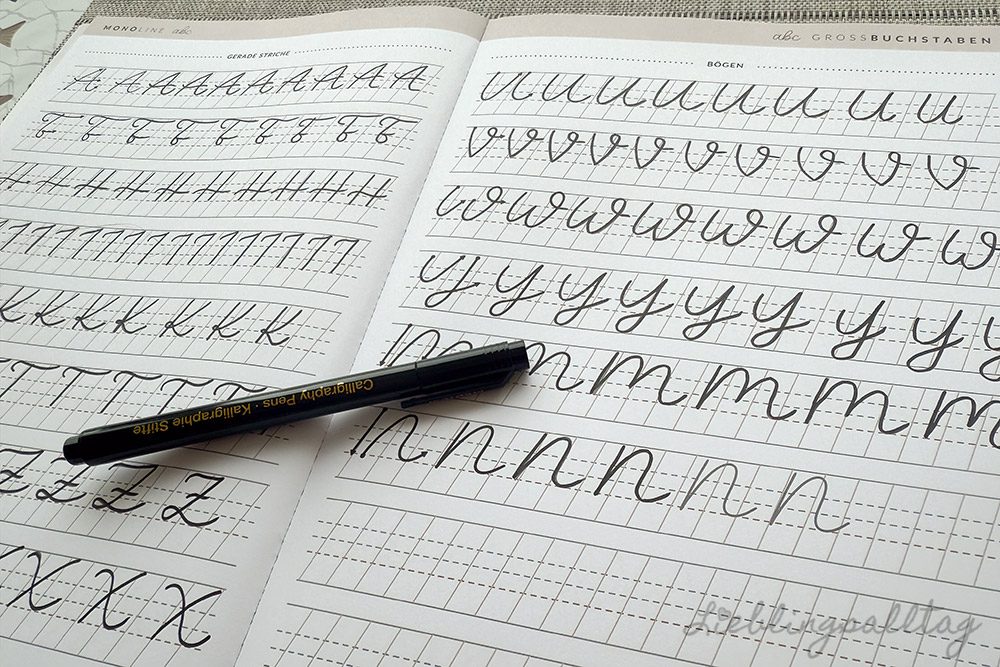 MONOLINE abc
GERADE STRICHE
A A A A A A A A A
F F F F F F F F F
H H H H H H H H H H
K K K K K K K
T T T T T
Z Z Z Z
X X X X
abc GROSSBUCHSTABEN
BÖGEN
U U U U U U U U
V V V V V V V V V V
W W W W W W W W
Y Y Y Y Y Y Y Y Y
M M M M M M M
N N N N N N
Calligraphy Pens · Kalligraphie Stifte
Lieblingsalltag